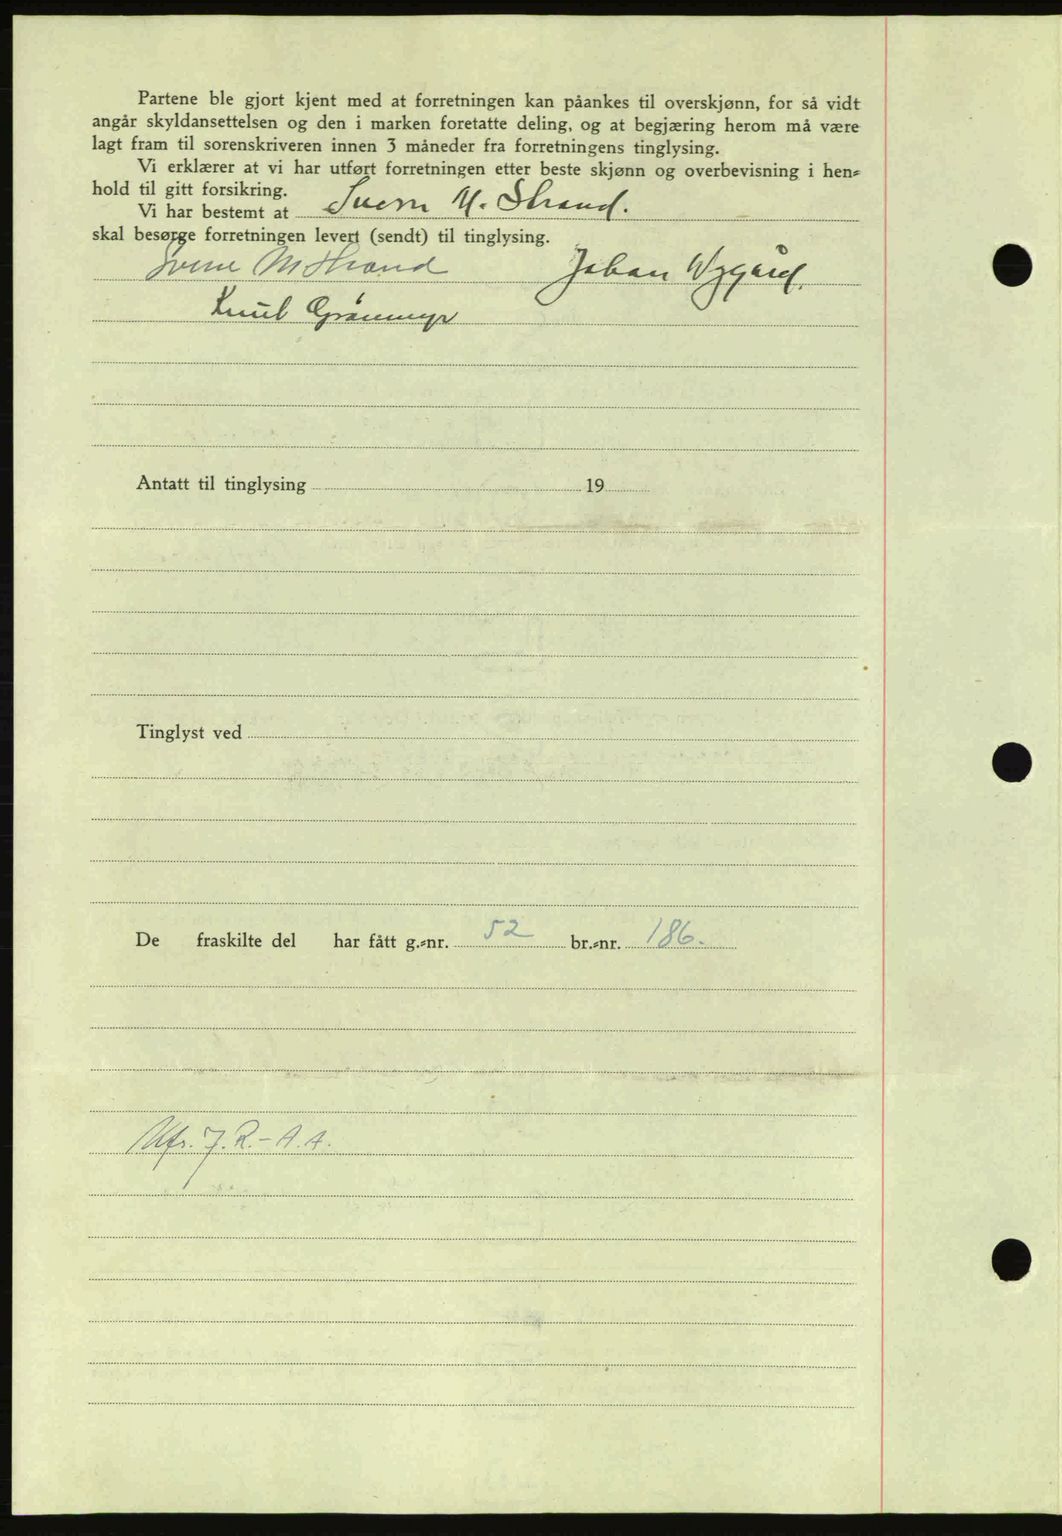 Partene ble gjort kjent med at forretningen kan påankes til overskjønn, for så vidt
angår skyldansettelsen og den i marken foretatte deling, og at begjæring herom må være
lagt fram til sorenskriveren innen 3 måneder fra forretningens tinglysing.
Vi erklærer at vi har utført forretningen etter beste skjønn og overbevisning i hen=
hold til gitt forsikring.
Vi har bestemt at Sverre M. Strand.
skal besørge forretningen levert (sendt) til tinglysing.
Sverre M Strand Johan Nygård.
Knut Grønmyr
Antatt til tinglysing 19
Tinglyst ved
De fraskilte del har fått g.=nr. 52 br.=nr. 186.
J. R. - A. A.